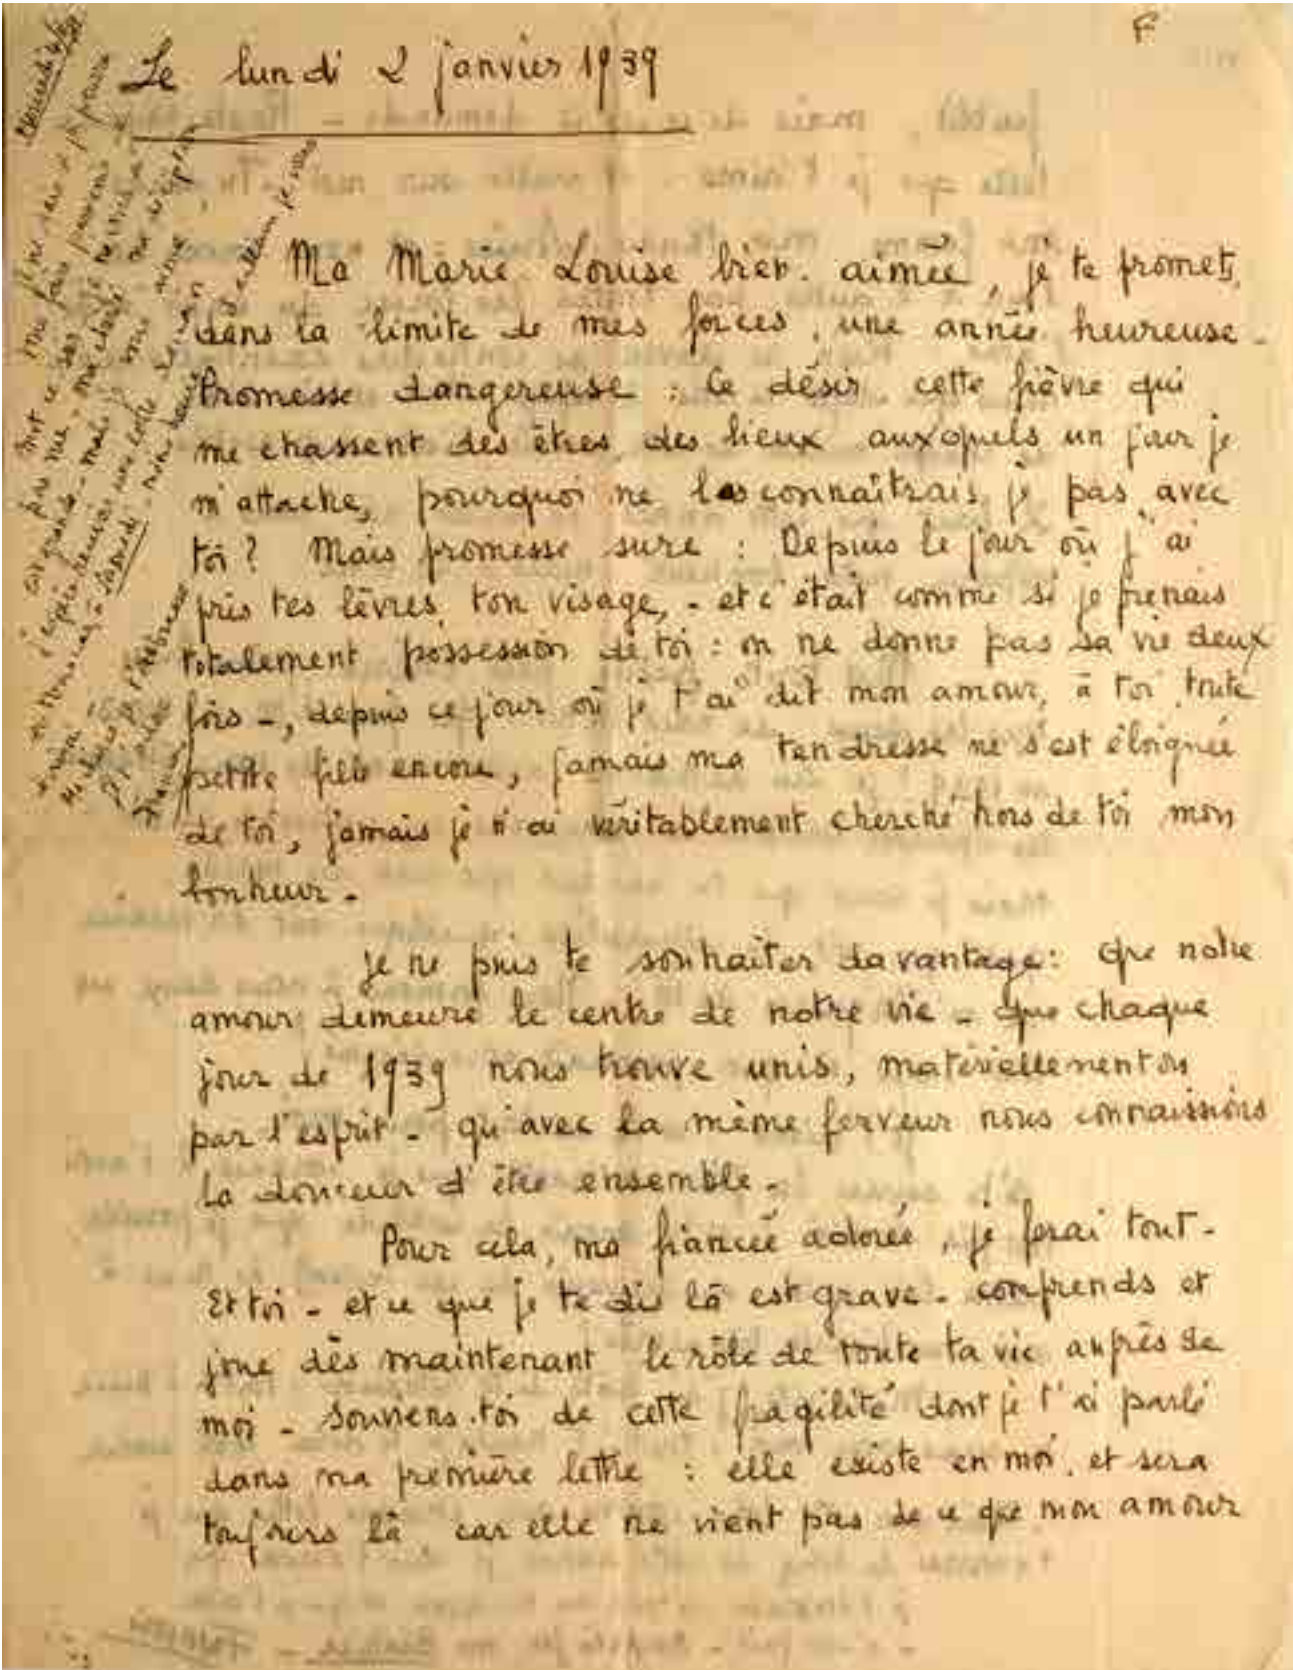 F
Le lundi 2 janvier 1939
Ma Marie Louise bien aimée, je te promets,
dans la limite de mes forces, une année heureuse -
Promesse dangereuse : Ce désir, cette fièvre qui
me chassent des êtres, des lieux auxquels un jour je
m'attache, pourquoi ne les connaîtrais je pas avec
toi ? Mais promesse sure : Depuis le jour où j'ai
pris tes lèvres, ton visage, - et c'était comme si je prenais
totalement possession de toi : on ne donne pas sa vie deux
fois -, depuis ce jour où je t'ai dit mon amour, à toi, toute
petite fille encore, jamais ma tendresse ne s'est éloignée
de toi, jamais je n'ai véritablement cherché hors de toi mon
bonheur -
Je ne puis te souhaiter davantage : Que notre
amour demeure le centre de notre vie - que chaque
jour de 1939 nous trouve unis, matériellement ou
par l'esprit - qu'avec la même ferveur nous connaissions
la douceur d'être ensemble -
Pour cela, ma fiancée adorée, je ferai tout -
Et toi - et ce que je te dis là est grave - comprends et
joue dès maintenant le rôle de toute ta vie auprès de
moi - Souviens-toi de cette fragilité dont je t'ai parlé
dans ma première lettre : elle existe en moi, et sera
toujours là, car elle ne vient pas de ce que mon amour
je ne sais si je pourrai
me faire
ce soir
pas me
mais
j'espère recevoir une lettre demain
samedi
je t'adore
François